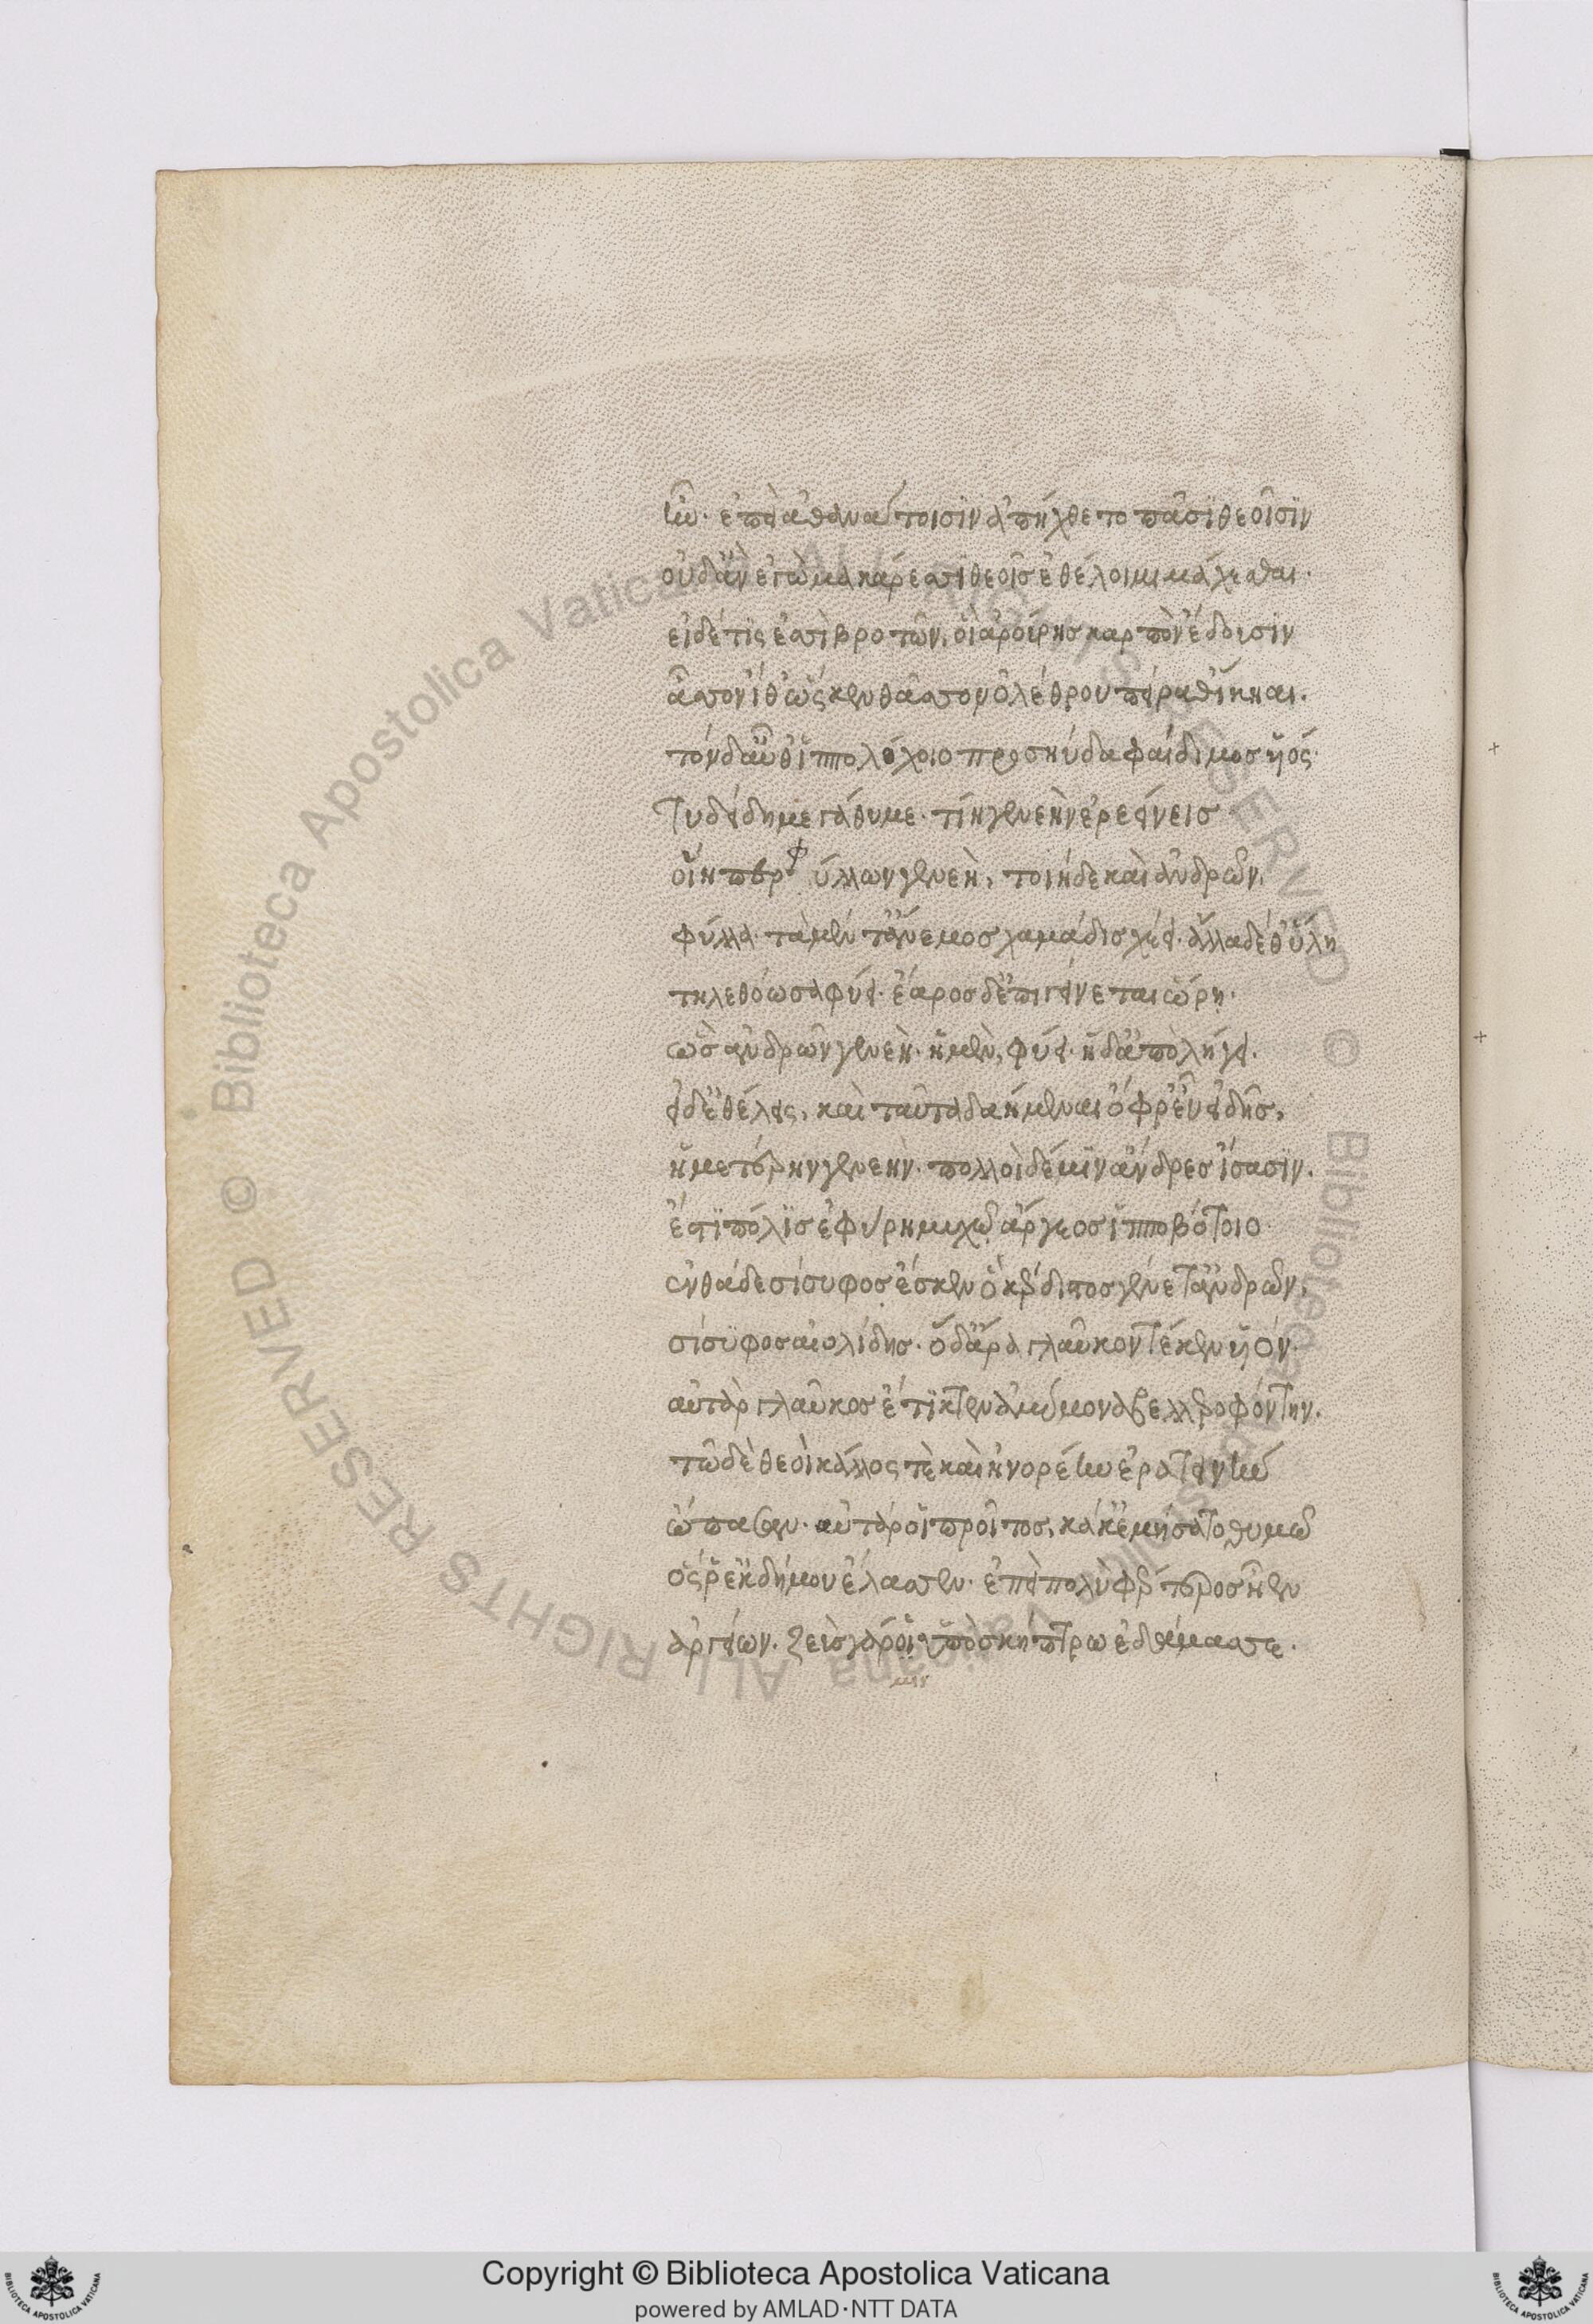 ἦν· ἐπεὶ ἀθανάτοισιν ἀπήχθετο πᾶσι θεοῖσιν
οὐδ' ἂν ἐγὼ μακάρεσσι θεοῖσ ἐθέλοιμι μάχεσθαι·
εἰ δέ τίς ἐσσι βροτῶν, οἳ ἀρούρησ καρπὸν ἔδουσιν
ἆσσον ἴθ' ὥς κεν θᾶσσον ὀλέθρου πείραθ' ἵκηαι.
τόνδ' αὖθ' ἱππολόχοιο προσηύδα φαίδιμοσ ἧός·
Τυδείδη μεγάθυμε· τίη γενεὴν ἐρεείνεισ
οἵη περ φύλλων γενεὴ, τοιήδε καὶ ἀνδρῶν,
φύλλα· τὰ μέν τ' ἄνεμοσ χαμάδισ χέει· ἄλλα δέ θ' ὕλη
τηλεθόωσα φύει· ἔαροσ δ' ἐπιγείνεται ὥρη·
ὣσ ἀνδρῶν γενεὴ· ἡμὲν, φύει· ἠδ' ἀπολήγει.
εἰ δ' ἐθέλεις, καὶ ταῦτα δαήμεναι ὄφρ' εὖ εἰδῆσ,
ἡμετέρην γενεήν· πολλοὶ δέ μιν ἄνδρεσ ἴσασιν.
ἔστι πόλισ ἐφύρη μυχῷ ἄργεοσ ἱπποβότοιο
ἐνθάδε σίσυφοσ ἔσκεν ὃ κέρδιστοσ γένετ' ἀνδρῶν,
σίσυφοσ αἰολίδησ· ὃ δ' ἄρα γλαῦκον τέκεν ἧόν·
αὐτὰρ γλαῦκοσ ἔτικτεν ἀμύμονα βελλεροφόντην.
τῶ δὲ θεοὶ κάλλος τὲ καὶ ἠνορέην ἐρατεινὴν
ὤπασεν· αὐτάρ οἱ προῖτοσ, κάκ' ἐμήσατο θυμῶ
ὅς ῥ' ἐκ δήμου ἔλασσεν· ἐπεὶ πολὺ φέρτεροσ ἦεν
ἀργείων. ζεὺσ γάρ οἱ ὑπὸ σκήπτρω ἐδάμασσε.